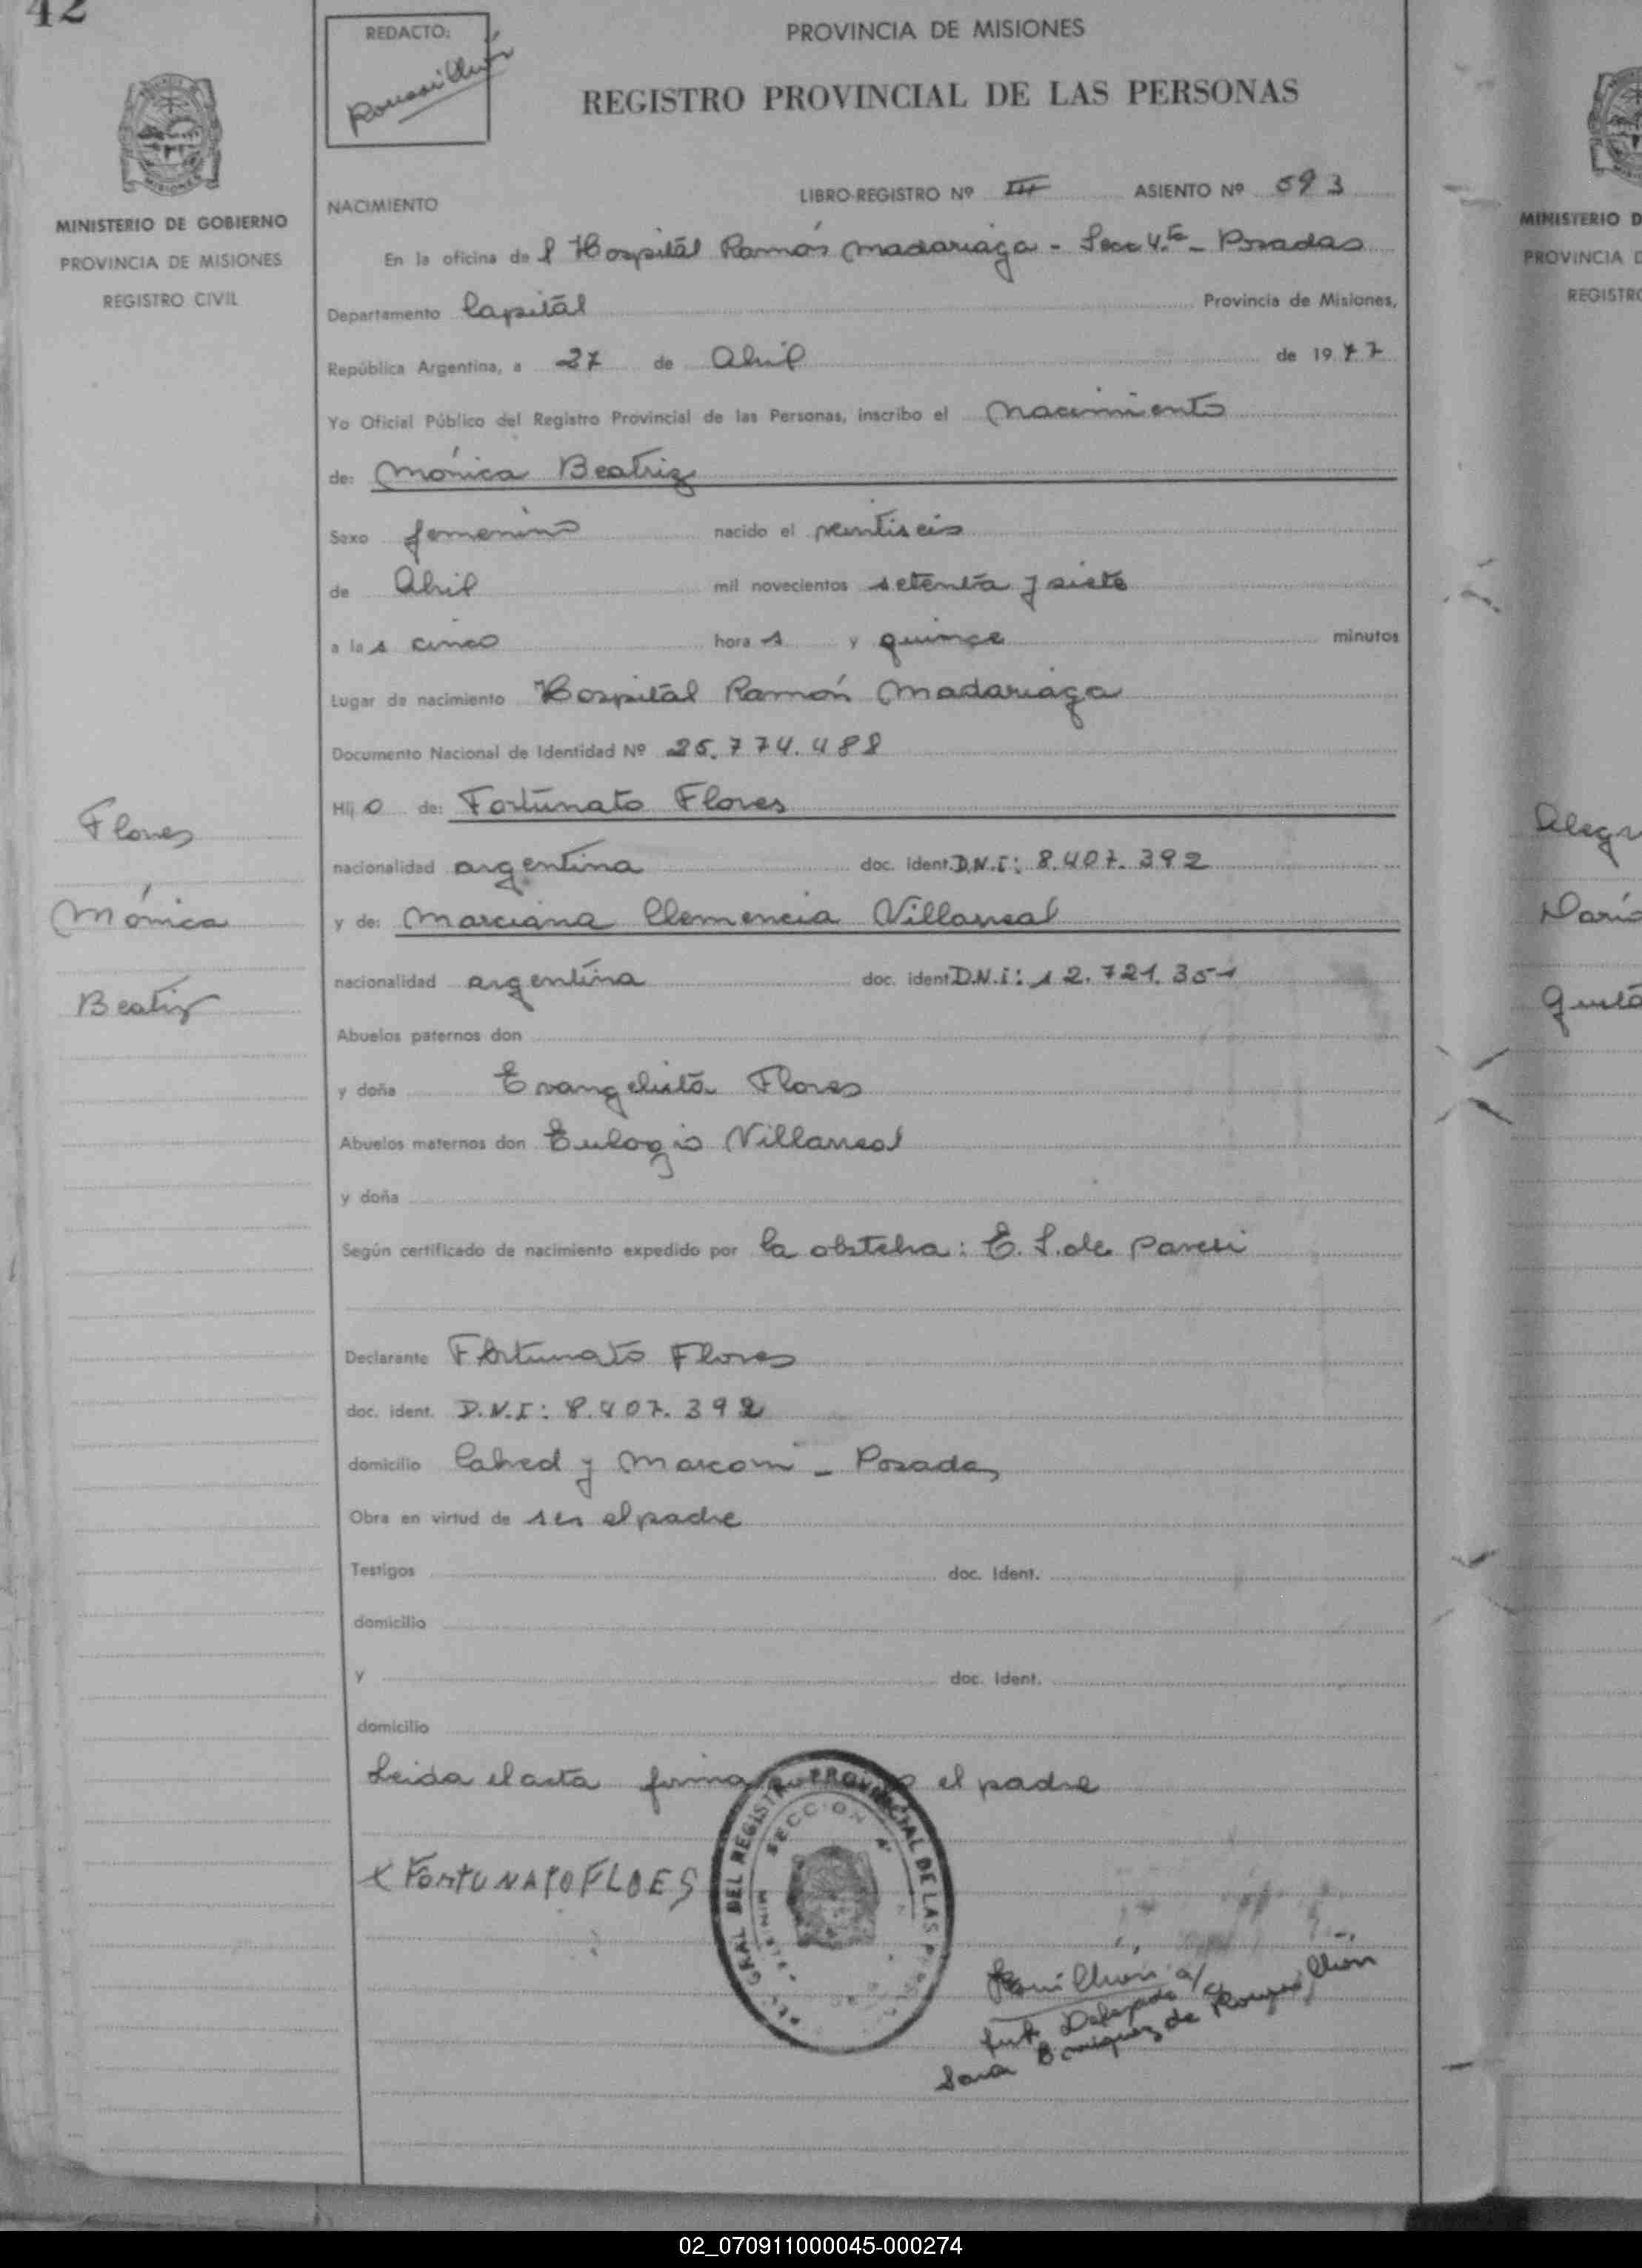 42
REDACTO:
Roussillón
PROVINCIA DE MISIONES
REGISTRO PROVINCIAL DE LAS PERSONAS
MINISTERIO DE GOBIERNO
PROVINCIA DE MISIONES
REGISTRO CIVIL
NACIMIENTO
LIBRO-REGISTRO Nº III ASIENTO Nº 593
En la oficina de l Hospital Ramón Madariaga - Secc 4.ta - Posadas
Departamento Capital Provincia de Misiones,
República Argentina, a 27 de Abril de 1977
Yo Oficial Público del Registro Provincial de las Personas, inscribo el nacimiento
de: Mónica Beatriz
Sexo femenino nacido el veintiseis
de Abril mil novecientos setenta y siete
a las cinco horas y quince minutos
Lugar de nacimiento Hospital Ramón Madariaga
Documento Nacional de Identidad Nº 25.774.488
Hijo de: Fortunato Flores
nacionalidad argentina doc. ident. D.N.I: 8.407.392
y de: Marciana Clemencia Villarreal
nacionalidad argentina doc. ident D.N.i: 12.721.351
Abuelos paternos don
y doña Evangelista Flores
Abuelos maternos don Eulogio Villarreal
y doña
Según certificado de nacimiento expedido por la obstetra: E. S. de
Declarante Fortunato Flores
doc. ident. D.N.I: 8.407.392
domicilio Cabred y Marconi - Posadas
Obra en virtud de ser el padre
Testigos doc. Ident.
domicilio
y doc. Ident.
domicilio
Leida el acta firma el padre
X FORTUNATO FLOES
DEL REGISTRO PROVINCIAL DE LAS
SECCION 4ª
Roussillón a/c
Delegado
Sara de Roussillón
Flores
Mónica
Beatriz
MINISTERIO D
PROVINCIA D
REGISTRO
Alegr
Darío
02_070911000045-000274